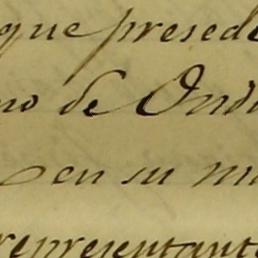 que presede
no de Ondu
en su ma
representante